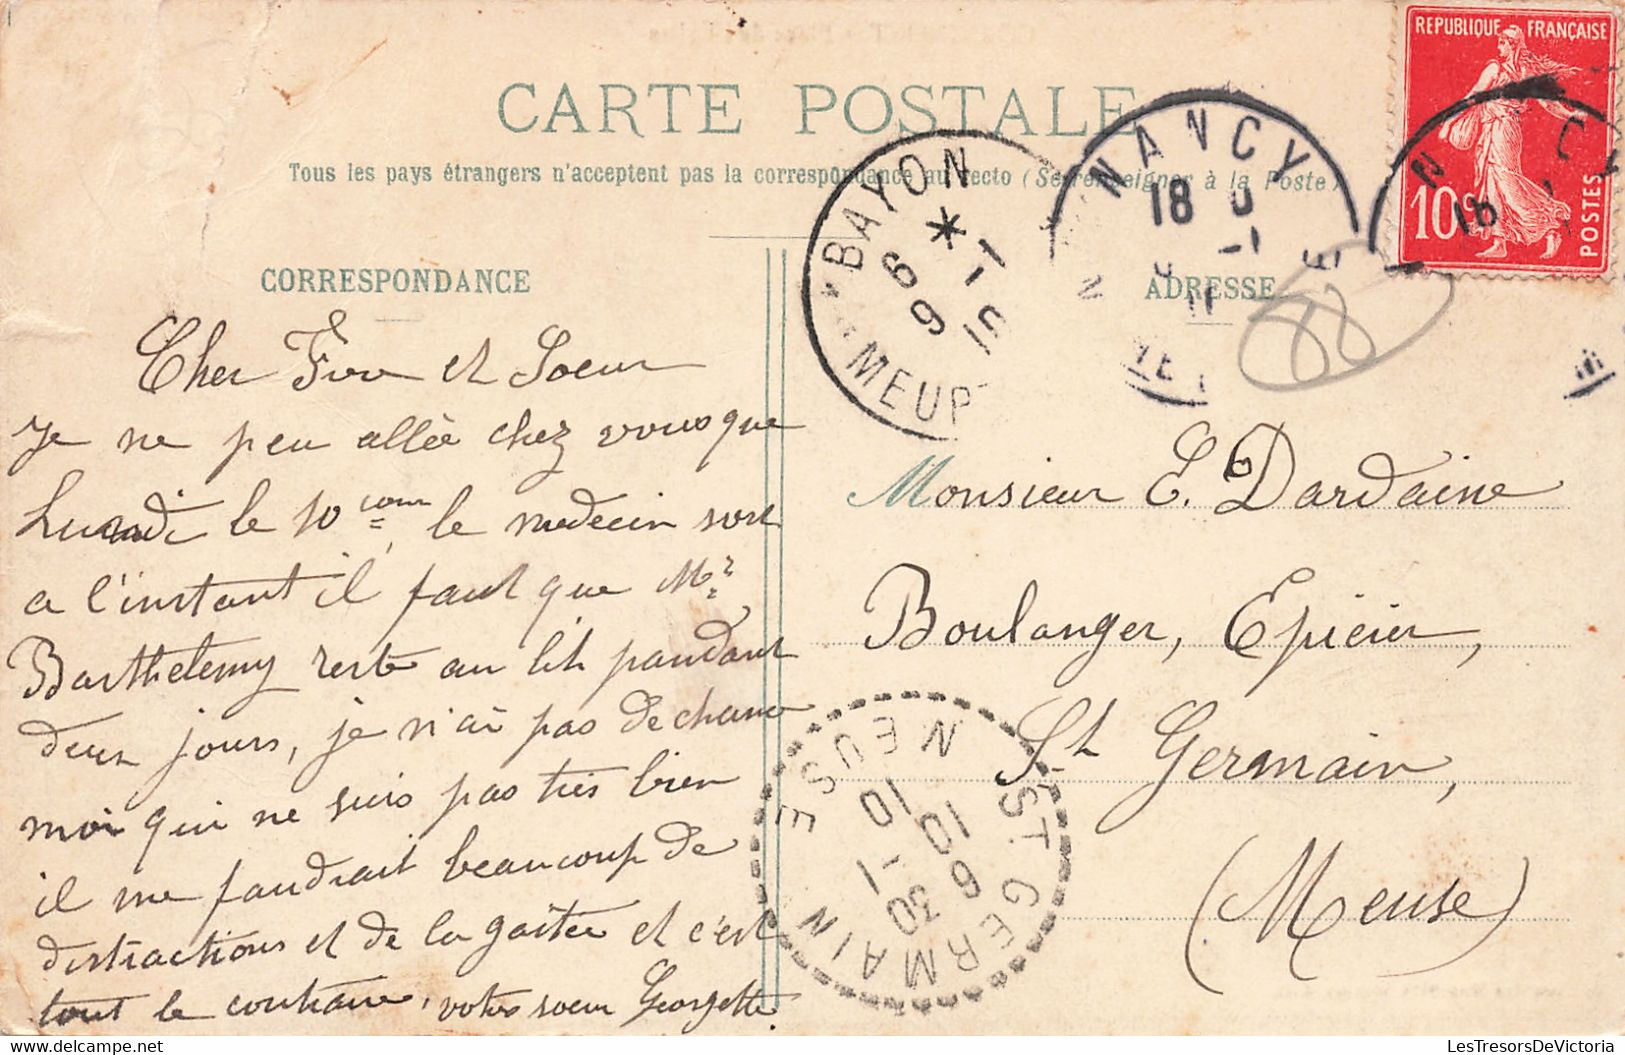 CARTE POSTALE
Tous les pays étrangers n'acceptent pas la correspondance au recto (Se renseigner à la Poste)
REPUBLIQUE FRANÇAISE
10c
POSTES
BAYON
6 * -1
9 10
MEURT
NANCY
18
-1
NANCY
18
88
CORRESPONDANCE
Cher Frere et Soeur
Je ne peu allée chez vous que
Lundi le 10 cour le medecin sort
a l'instant il faut que Mr
Barthelemy reste au lit pandant
deux jours, je n'ai pas de chance
moi qui ne suis pas très bien
il me faudrait beaucoup de
distractions et de la gaitée et c'est
tout le contraire, votre soeur Georgette
ADRESSE
Monsieur E. Dardaine
Boulanger, Epicier,
St Germain,
(Meuse)
ST GERMAIN
MEUSE
6 30
10 -1
10
LesTresorsDeVictoria